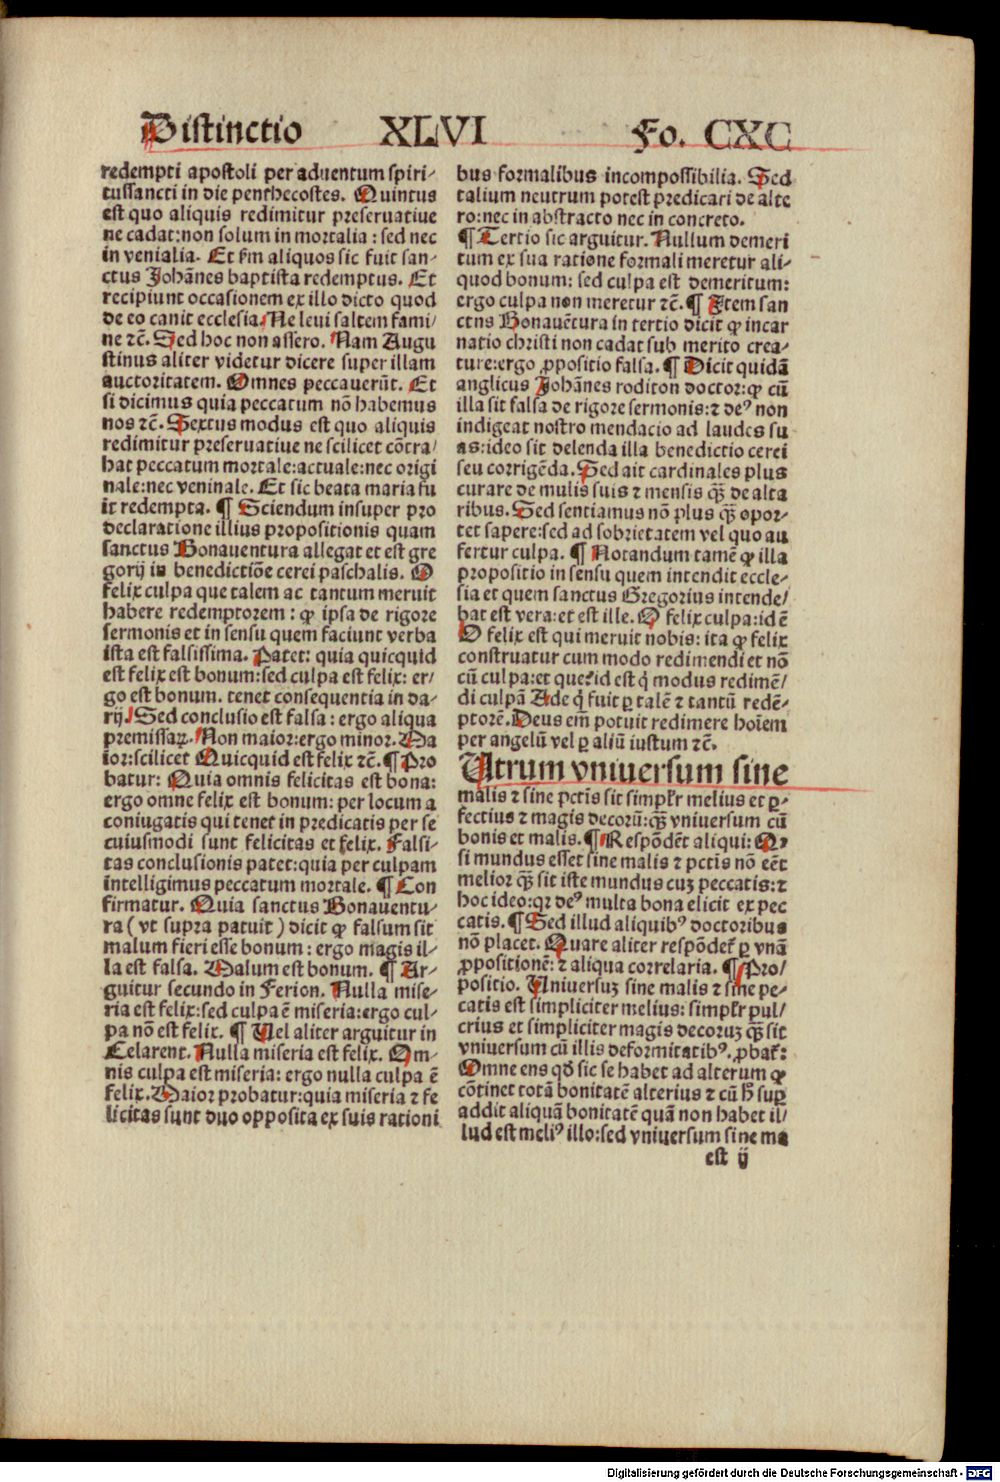 Distinctio XLVI Fo. CXC
redempti apostoli per aduentum spiri-
tussancti in die penthecostes. Quintus
est quo aliquis redimitur preseruatiue
ne cadat:non solum in mortalia : sed nec
in venialia. Et fm aliquos sic fuit san-
ctus Johānes baptista redemptus. Et
recipiunt occasionem ex illo dicto quod
de eo canit ecclesia. Ne leui saltem fami/
ne ⁊c̄. Sed hoc non assero. Nam Augu
stinus aliter videtur dicere super illam
auctoritatem. Omnes peccauerūt. Et
si dicimus quia peccatum nō habemus
nos ⁊c̄. Sextus modus est quo aliquis
redimitur preseruatiue ne scilicet cōtra/
hat peccatum mortale:actuale:nec origi
nale:nec veninale. Et sic beata maria fu
it redempta. ¶ Sciendum insuper pro
declaratione illius propositionis quam
sanctus Bonauentura allegat et est gre
gorij in benedictiōe cerei paschalis. O
felix culpa que talem ac tantum meruit
habere redemptorem : ꝙ ipsa de rigore
sermonis et in sensu quem faciunt verba
ista est falsissima. Patet: quia quicquid
est felix est bonum:sed culpa est felix: er/
go est bonum. tenet consequentia in da-
rij. Sed conclusio est falsa : ergo aliqua
premissaꝝ. Non maior:ergo minor. Ma
ior:scilicet Quicquid est felix ⁊c̄. ¶ Pro
batur: Quia omnis felicitas est bona:
ergo omne felix est bonum: per locum a
coniugatis qui tenet in predicatis per se
cuiusmodi sunt felicitas et felix. Falsi-
tas conclusionis patet:quia per culpam
intelligimus peccatum mortale. ¶ Con
firmatur. Quia sanctus Bonauentu-
ra ( vt supra patuit ) dicit ꝙ falsum sit
malum fieri esse bonum : ergo magis il-
la est falsa. Malum est bonum. ¶ Ar-
guitur secundo in Ferion. Nulla mise-
ria est felix:sed culpa ē miseria:ergo cul-
pa nō est felix. ¶ Uel aliter arguitur in
Celarent. Nulla miseria est felix. Om-
nis culpa est miseria: ergo nulla culpa ē
felix. Maior probatur:quia miseria ⁊ fe
licitas sunt duo opposita ex suis rationi
bus formalibus incompossibilia. Sed
talium neutrum potest predicari de alte
ro:nec in abstracto nec in concreto.
¶ Tertio sic arguitur. Nullum demeri
tum ex sua ratione formali meretur ali-
quod bonum: sed culpa est demeritum:
ergo culpa non meretur ⁊c̄. ¶ Item san
ctns Bonauētura in tertio dicit ꝙ incar
natio christi non cadat sub merito crea-
ture:ergo ꝓpositio falsa. ¶ Dicit quidā
anglicus Johānes roditon doctor:ꝙ cū
illa sit falsa de rigore sermonis:⁊ deꝰ non
indigeat nostro mendacio ad laudes su
as:ideo sit delenda illa benedictio cerei
seu corrigēda. Sed ait cardinales plus
curare de mulis suis ⁊ mensis qꝫ̄ de alta
ribus. Sed sentiamus nō plus qꝫ̄ opor-
tet sapere:sed ad sobrietatem vel quo au
fertur culpa. ¶ Notandum tamē ꝙ illa
propositio in sensu quem intendit eccle-
sia et quem sanctus Gregorius intende/
bat est vera:et est ille. O felix culpa:id ē
O felix est qui meruit nobis: ita ꝙ felix
construatur cum modo redimendi et nō
cū culpa:et que:id est q̇ modus redimē/
di culpā Ade q̇ fuit ꝑ talē ⁊ tantū redē-
ptorē. Deus em̄ potuit redimere hoīem
per angelū vel ꝑ aliū iustum ⁊c̄.
Utrum vniuersum sine
malis ⁊ sine pctīs sit simplr̄ melius et ꝑ-
fectius ⁊ magis decorū:qꝫ̄ vniuersum cū
bonis et malis. ¶ Respōdēt aliqui: Q
si mundus esset sine malis ⁊ pctīs nō eēt
melior qꝫ̄ sit iste mundus cuꝫ peccatis:⁊
hoc ideo:qꝛ deꝰ multa bona elicit ex pec
catis. ¶ Sed illud aliquibꝰ doctoribus
nō placet. Quare aliter respōdet̄ ꝑ vnā
ꝓpositionē: ⁊ aliqua correlaria. ¶ Pro/
positio. Uniuersuꝫ sine malis ⁊ sine pe-
catis est simpliciter melius: simplr̄ pul/
crius et simpliciter magis decoruꝫ qꝫ̄ sit
vniuersum cū illis deformitatibꝰ. ꝓbat̄:
Omne ens qd̄ sic se habet ad alterum ꝙ
cōtinet totā bonitatē alterius ⁊ cū h̄ suꝑ
addit aliquā bonitatē quā non habet il/
lud est meliꝰ illo:sed vniuersum sine ma
est ij
Digitalisierung gefördert durch die Deutsche Forschungsgemeinschaft - DFG